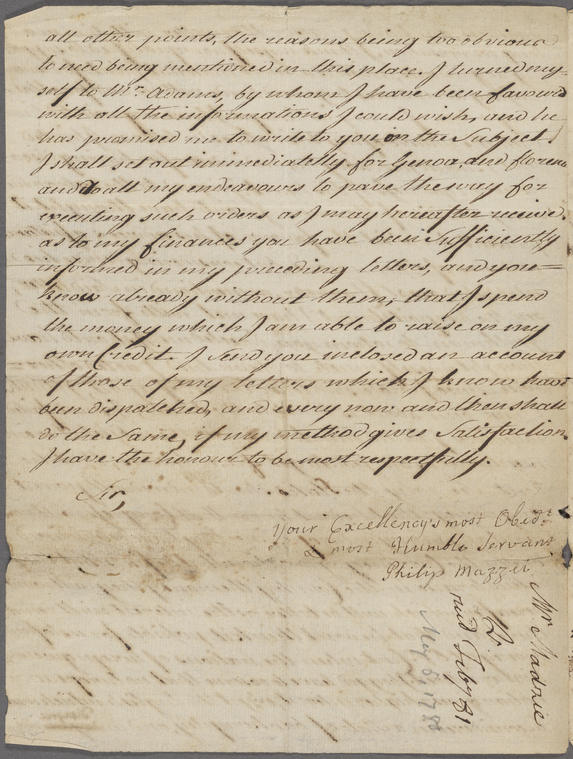 all other points, the reasons being too obvious
to need being mentioned in this place, I turned my-
self to Mr. Adams, by whom I have been favourd
with all the informations I could wish, and he
has promised me to write to you on the Subject.
I shall set out immediatelly for Genoa, and florence
and do all my endeavours to pave the way for
executing such orders as I may hereafter receive.
as to my finances you have been Sufficiently
informed in my preceding letters, and you=
know already without them, that I spend
the money which I am able to raise on my
own Credit. I send you inclosed an account
of those of my letters which I know have
been dispatched, and every now and then shall
do the Same, if my method gives Satisfaction.
I have the honour to be most respectfully.
Sir,
Your Excellency's most Obedt.
& most Humble Servant
Philip Mazzei
Mr Madzie
Lr
recd Feby 81
May 8 1780